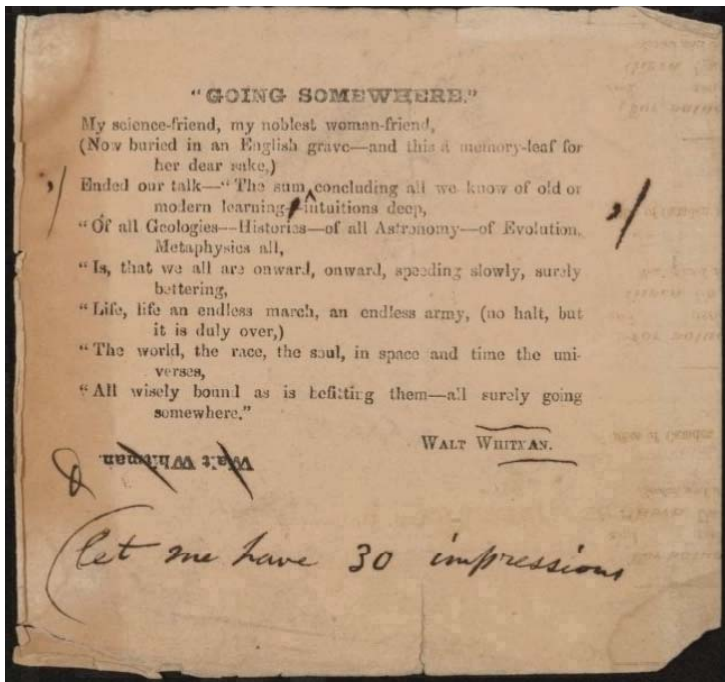 "GOING SOMEWHERE."
My science-friend, my noblest woman-friend,
(Now buried in an English grave—and this a memory-leaf for
her dear sake,)
Ended our talk—"The sum, concluding all we know of old or
modern learning, intuitions deep,
"Of all Geologies—Histories—of all Astronomy—of Evolution,
Metaphysics all,
"Is, that we all are onward, onward, speeding slowly, surely
bettering,
"Life, life an endless march, an endless army, (no halt, but
it is duly over,)
"The world, the race, the soul, in space and time the uni-
verses,
"All wisely bound as is befitting them—all surely going
somewhere."
WALT WHITMAN.
Walt Whitman.
(let me have 30 impressions